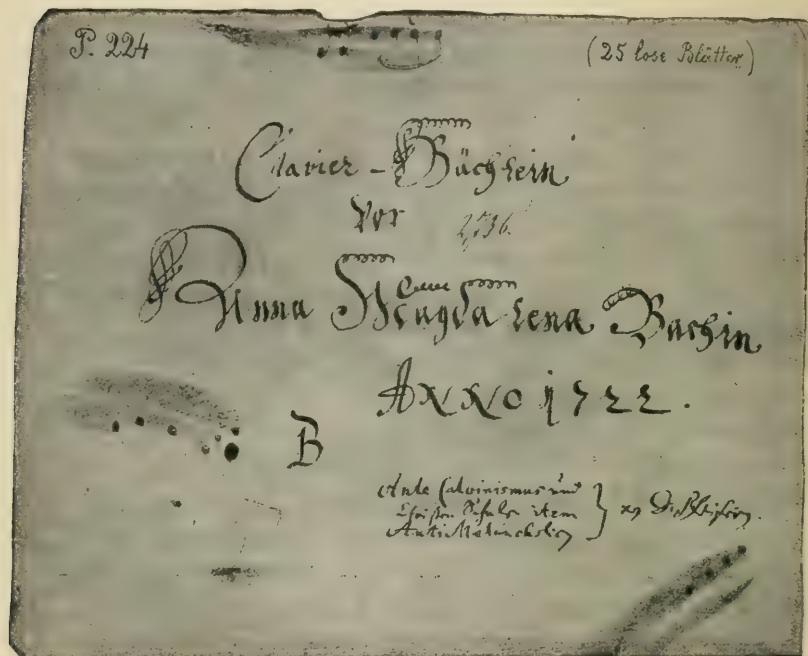 P. 224
(25 lose Blätter)
Clavier-Büchlein
vor
Anna Magdalena Bachin
ANNO 1722.
B
Ante Calvinismus und
Christen Schule item
AntiMelancholicy